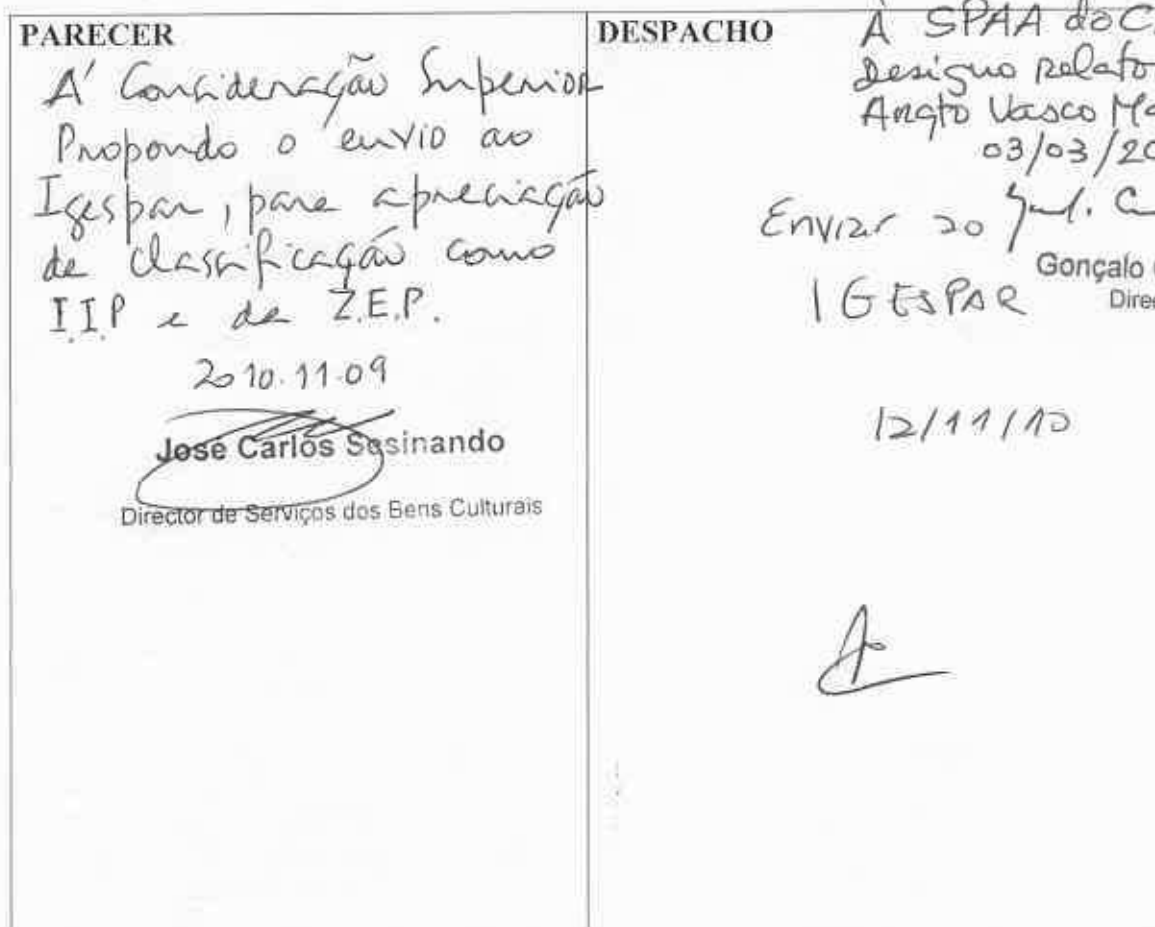 PARECER
À Consideração Superior
Propondo o envio ao
Igespar, para apreciação
de classificação como
I.I.P e de Z.E.P.
2010.11.09
José Carlos Sesinando
Director de Serviços dos Bens Culturais
DESPACHO
À SPAA do C
Designo relato
Arqto Vasco Ma
03/03/20
Enviar ao
IGESPAR
Gonçalo
Direc
12/11/10